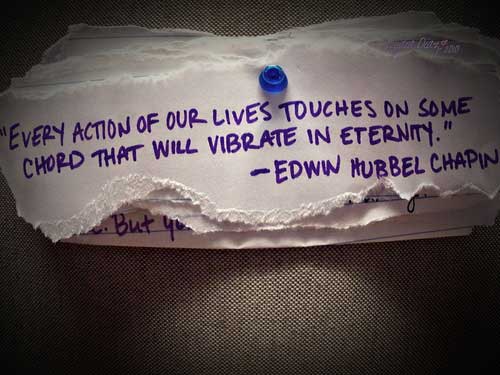 "EVERY ACTION OF OUR LIVES TOUCHES ON SOME
CHORD THAT WILL VIBRATE IN ETERNITY."
—EDWIN HUBBEL CHAPIN
. But